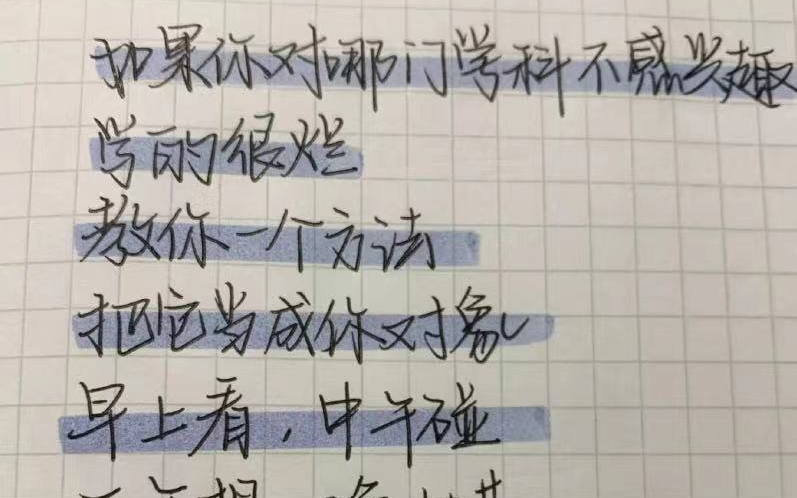 如果你对哪门学科不感兴趣
学的很烂
教你一个方法
把它当成你对象
早上看,中午碰